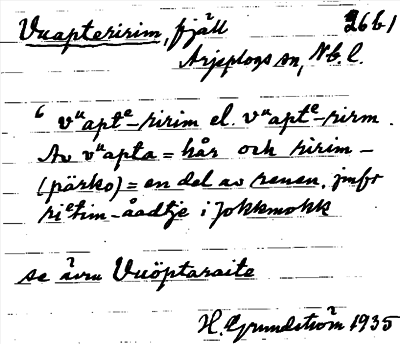 Vuapteririm, fjäll 26b1
Arjeplogs sn, Nb. l.
vᵘaptᵉ-ririm el. vᵘaptᵉ-rirm.
Av vᵘapta = hår och ririm-
(pärko) = en del av renen, jmfr
riᵉtim-åadtje i Jokkmokk
se även Vuöptaraite
H. Grundström 1935